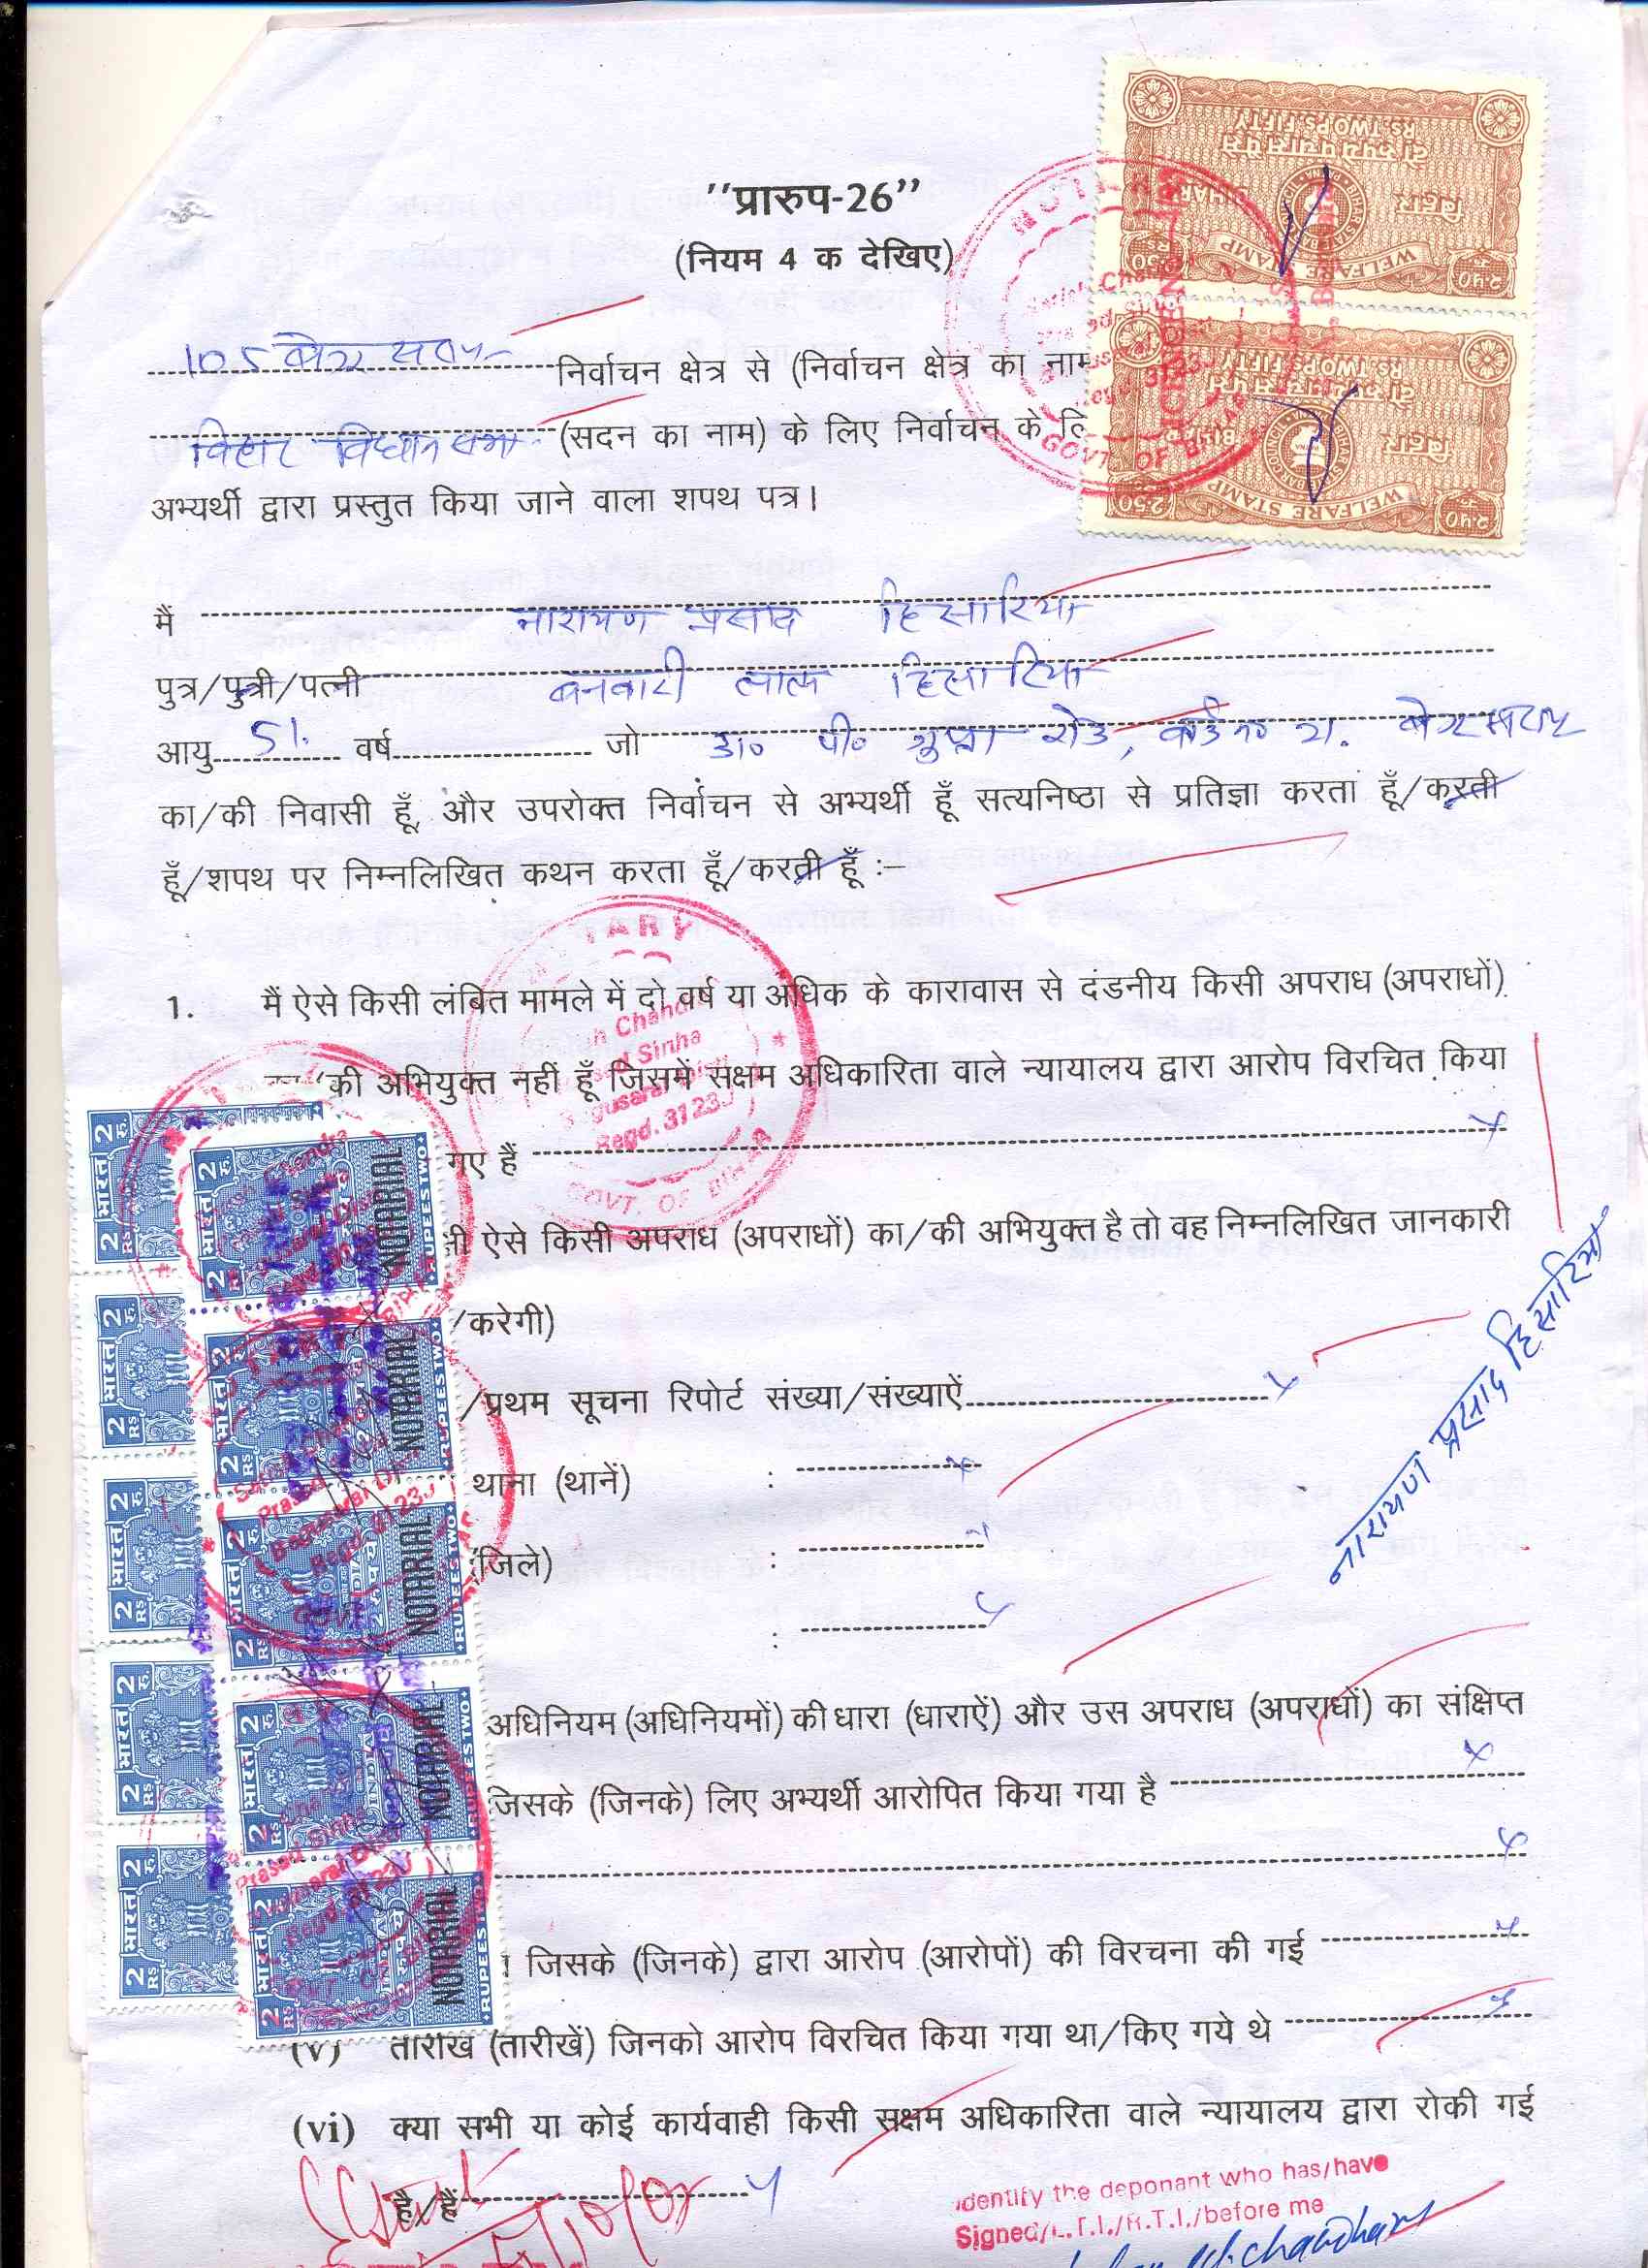 "प्रारुप-26"
(नियम 4 क देखिए)
105 निर्वाचन क्षेत्र से (निर्वाचन क्षेत्र का नाम
बिहार विधान सभा (सदन का नाम) के लिए निर्वाचन के लि
अभ्यर्थी द्वारा प्रस्तुत किया जाने वाला शपथ पत्र।
मैं नारायण प्रसाद हिसारिया
पुत्र/पुत्री/पत्नी बनवारी लाल हिसारिया
आयु 51 वर्ष जो डा० पी० गुप्ता रोड, वार्ड न०
का/की निवासी हूँ, और उपरोक्त निर्वाचन से अभ्यर्थी हूँ सत्यनिष्ठा से प्रतिज्ञा करता हूँ/करती
हूँ/शपथ पर निम्नलिखित कथन करता हूँ/करती हूँ :–
1. मैं ऐसे किसी लंबित मामले में दो वर्ष या अधिक के कारावास से दंडनीय किसी अपराध (अपराधों)
की अभियुक्त नहीं हूँ जिसमें सक्षम अधिकारिता वाले न्यायालय द्वारा आरोप विरचित किया
गए हैं x
ऐसे किसी अपराध (अपराधों) का/की अभियुक्त है तो वह निम्नलिखित जानकारी
/करेगी)
/प्रथम सूचना रिपोर्ट संख्या/संख्याऐं x
थाना (थानें) : x
(जिले) : x
: x
अधिनियम (अधिनियमों) की धारा (धाराऐं) और उस अपराध (अपराधों) का संक्षिप्त
जिसके (जिनके) लिए अभ्यर्थी आरोपित किया गया है x
x
जिसके (जिनके) द्वारा आरोप (आरोपों) की विरचना की गई x
(v) तारीख (तारीखें) जिनको आरोप विरचित किया गया था/किए गये थे x
(vi) क्या सभी या कोई कार्यवाही किसी सक्षम अधिकारिता वाले न्यायालय द्वारा रोकी गई
है/हैं x
नारायण प्रसाद हिसारिया
identify the deponant who has/have
Signed/L.T.I./R.T.I./before me
RS. TWO PS. FIFTY
दो रुपये पचास पैसे
बिहार BIHAR
WELFARE STAMP
2.50
RS. TWO PS. FIFTY
दो रुपये पचास पैसे
बिहार BIHAR
WELFARE STAMP
2.50
NOTARY
Regd. 3123
GOVT. OF BIHAR
भारत
2 रु.
2 RS
INDIA
NOTARIAL
RUPEES TWO